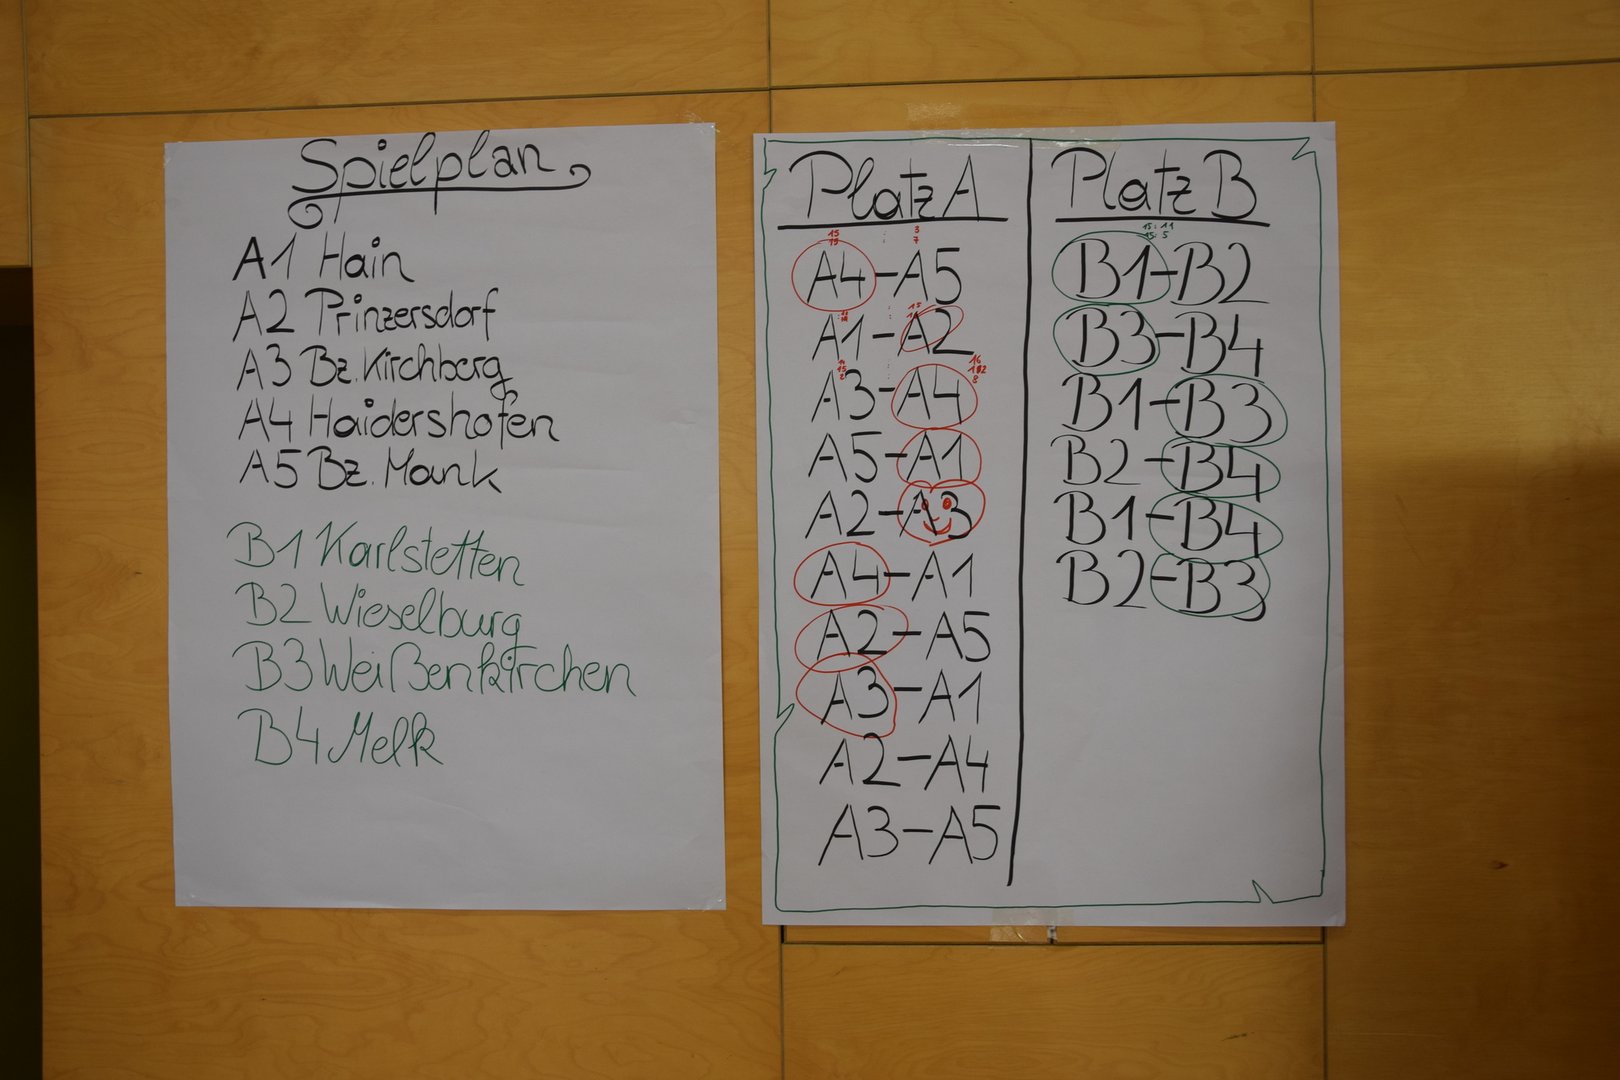 Spielplan
A1 Hain
A2 Prinzersdorf
A3 Bz. Kirchberg
A4 Haidershofen
A5 Bz. Mank
B1 Karlstetten
B2 Wieselburg
B3 Weißenkirchen
B4 Melk
Platz A
15 : 3
15 : 7
A4-A5
A1-A2
A3-A4
A5-A1
A2-A3
A4-A1
A2-A5
A3-A1
A2-A4
A3-A5
Platz B
15:11
15:5
B1-B2
B3-B4
B1-B3
B2-B4
B1-B4
B2-B3